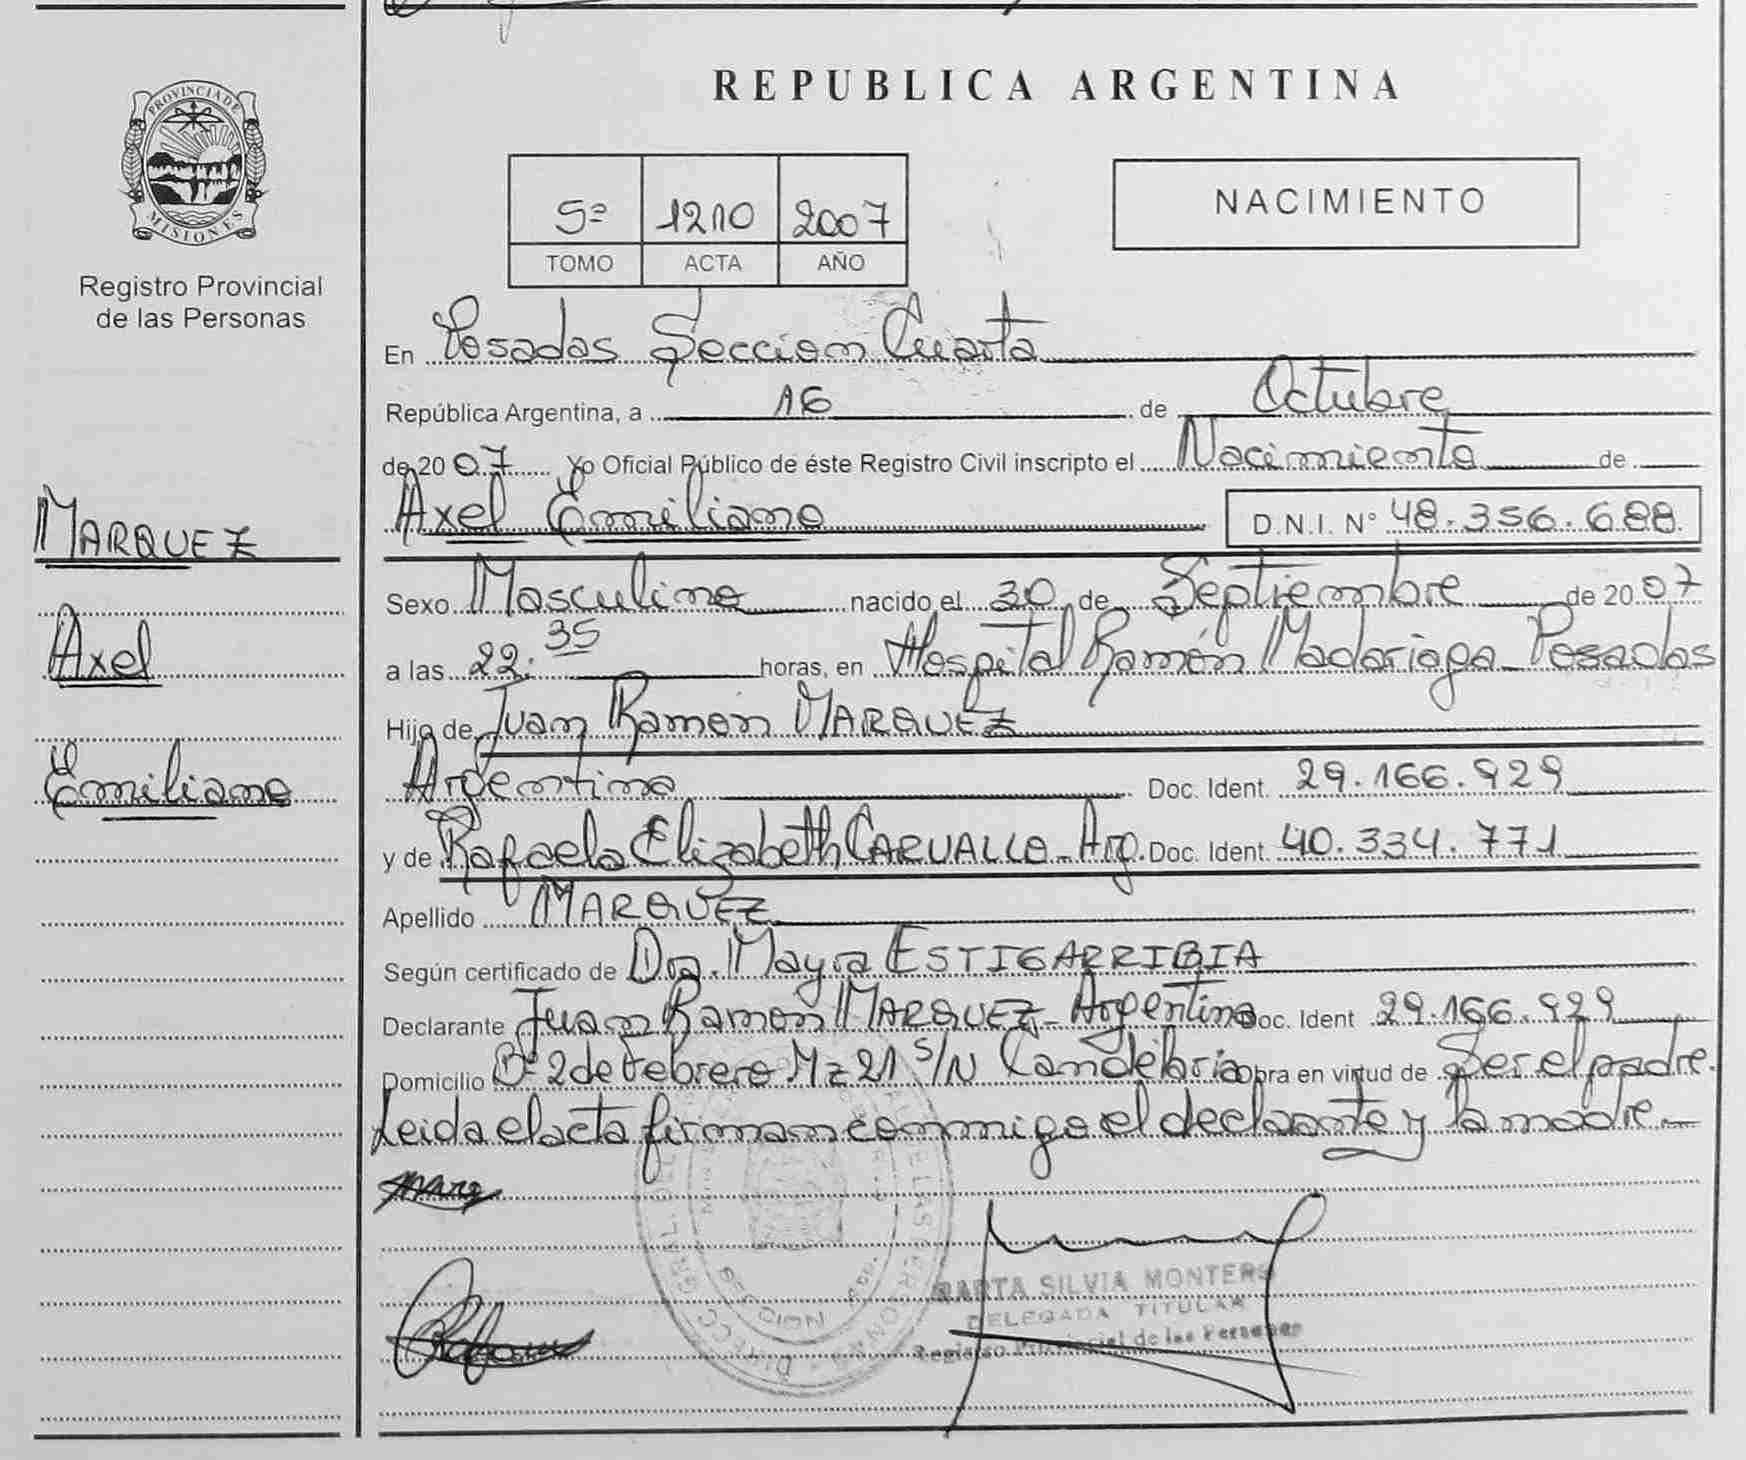 PROVINCIA DE
MISIONES
Registro Provincial
de las Personas
MARQUEZ
Axel
Emiliano
REPUBLICA ARGENTINA
5º 1210 2007
TOMO ACTA AÑO
NACIMIENTO
En Posadas Seccion Cuarta
República Argentina, a 16 de Octubre
de 20 07 Yo Oficial Público de éste Registro Civil inscripto el Nacimiento de
Axel Emiliano D.N.I. N° 48.356.688
Sexo Masculino nacido el 30 de Septiembre de 20 07
a las 22:35 horas, en Hospital Ramón Madariaga Posadas
Hijo de Juan Ramón MARQUEZ
Argentino Doc. Ident. 29.166.929
y de Rafaela Elizabeth CARVALLO - Arg. Doc. Ident. 40.334.771
Apellido MARQUEZ
Según certificado de Dra. Mayra ESTIGARRIBIA
Declarante Juan Ramón MARQUEZ - Argentino Doc. Ident 29.166.929
Domicilio Bº 2 de Febrero Mz 21 S/N Candelaria Obra en virtud de Ser el padre.
Leida el acta firman conmigo el declarante y la madre.-
SILVIA MONTERO
DELEGADA TITULAR
Registro Provincial de las Personas